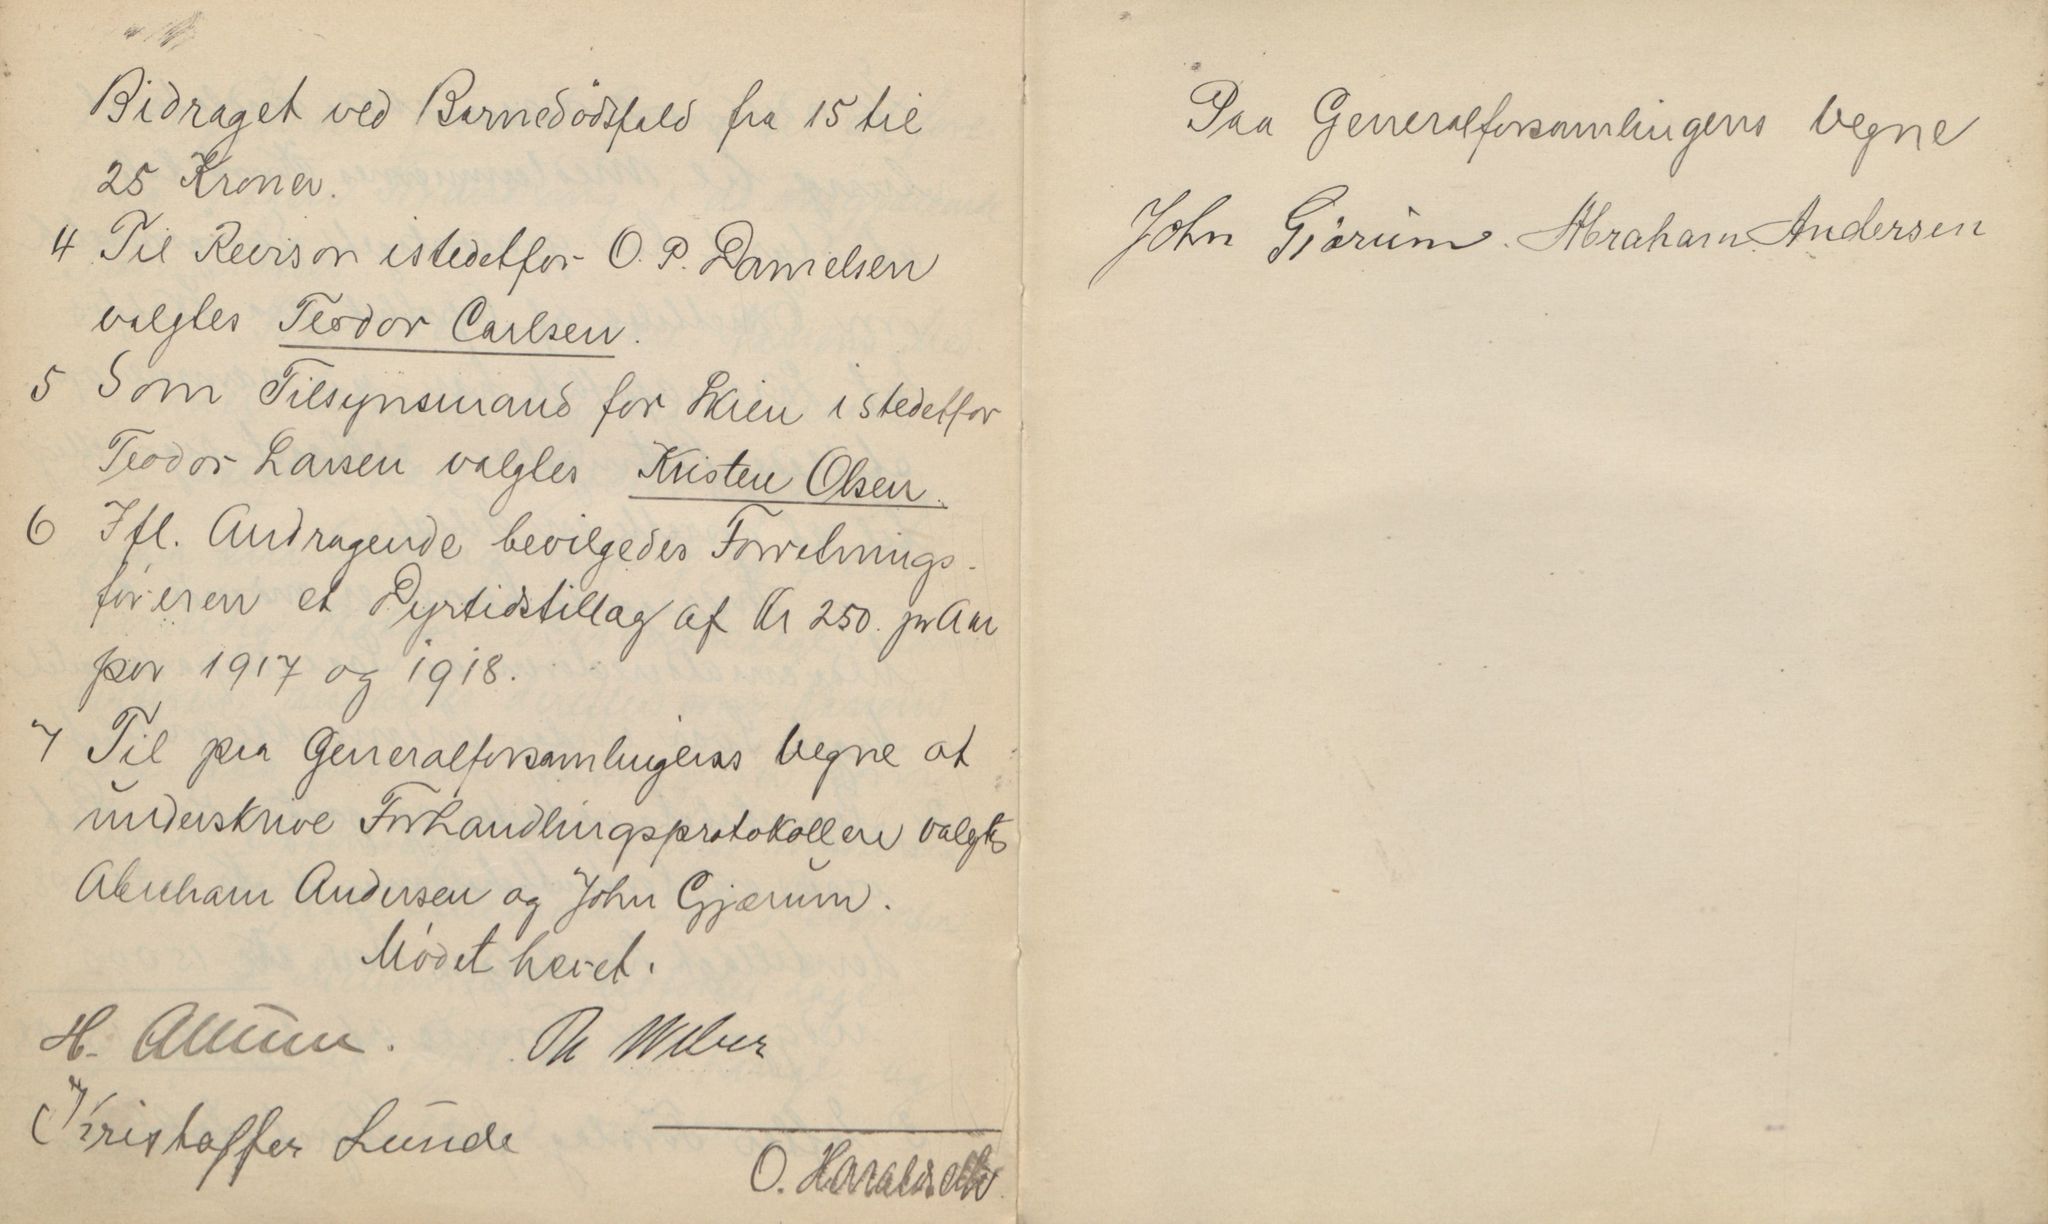 Bidraget ved Barnedödsfald fra 15 til
25 Kroner.
4 Til Revisor istedetfor O. P. Danielsen
valgtes Teodor Carlsen.
5 Som Tilsynsmand for Skien istedetfor
Teodor Larsen valgtes Kristen Olsen.
6 Ifl. Andragende bevilgedes Forretnings-
føreren et Dyrtidstillag af Kr 250. pr Aar
for 1917 og 1918.
7 Til paa Generalforsamlingens Vegne at
underskrive Forhandlingsprotokollen valgtes
Abraham Andersen og John Gjærum.
Mødet hævet.
H. Th Weber
Kristoffer Lunde
O.
Paa Generalforsamlingens Vegne
John Gjærum. Abraham Andersen